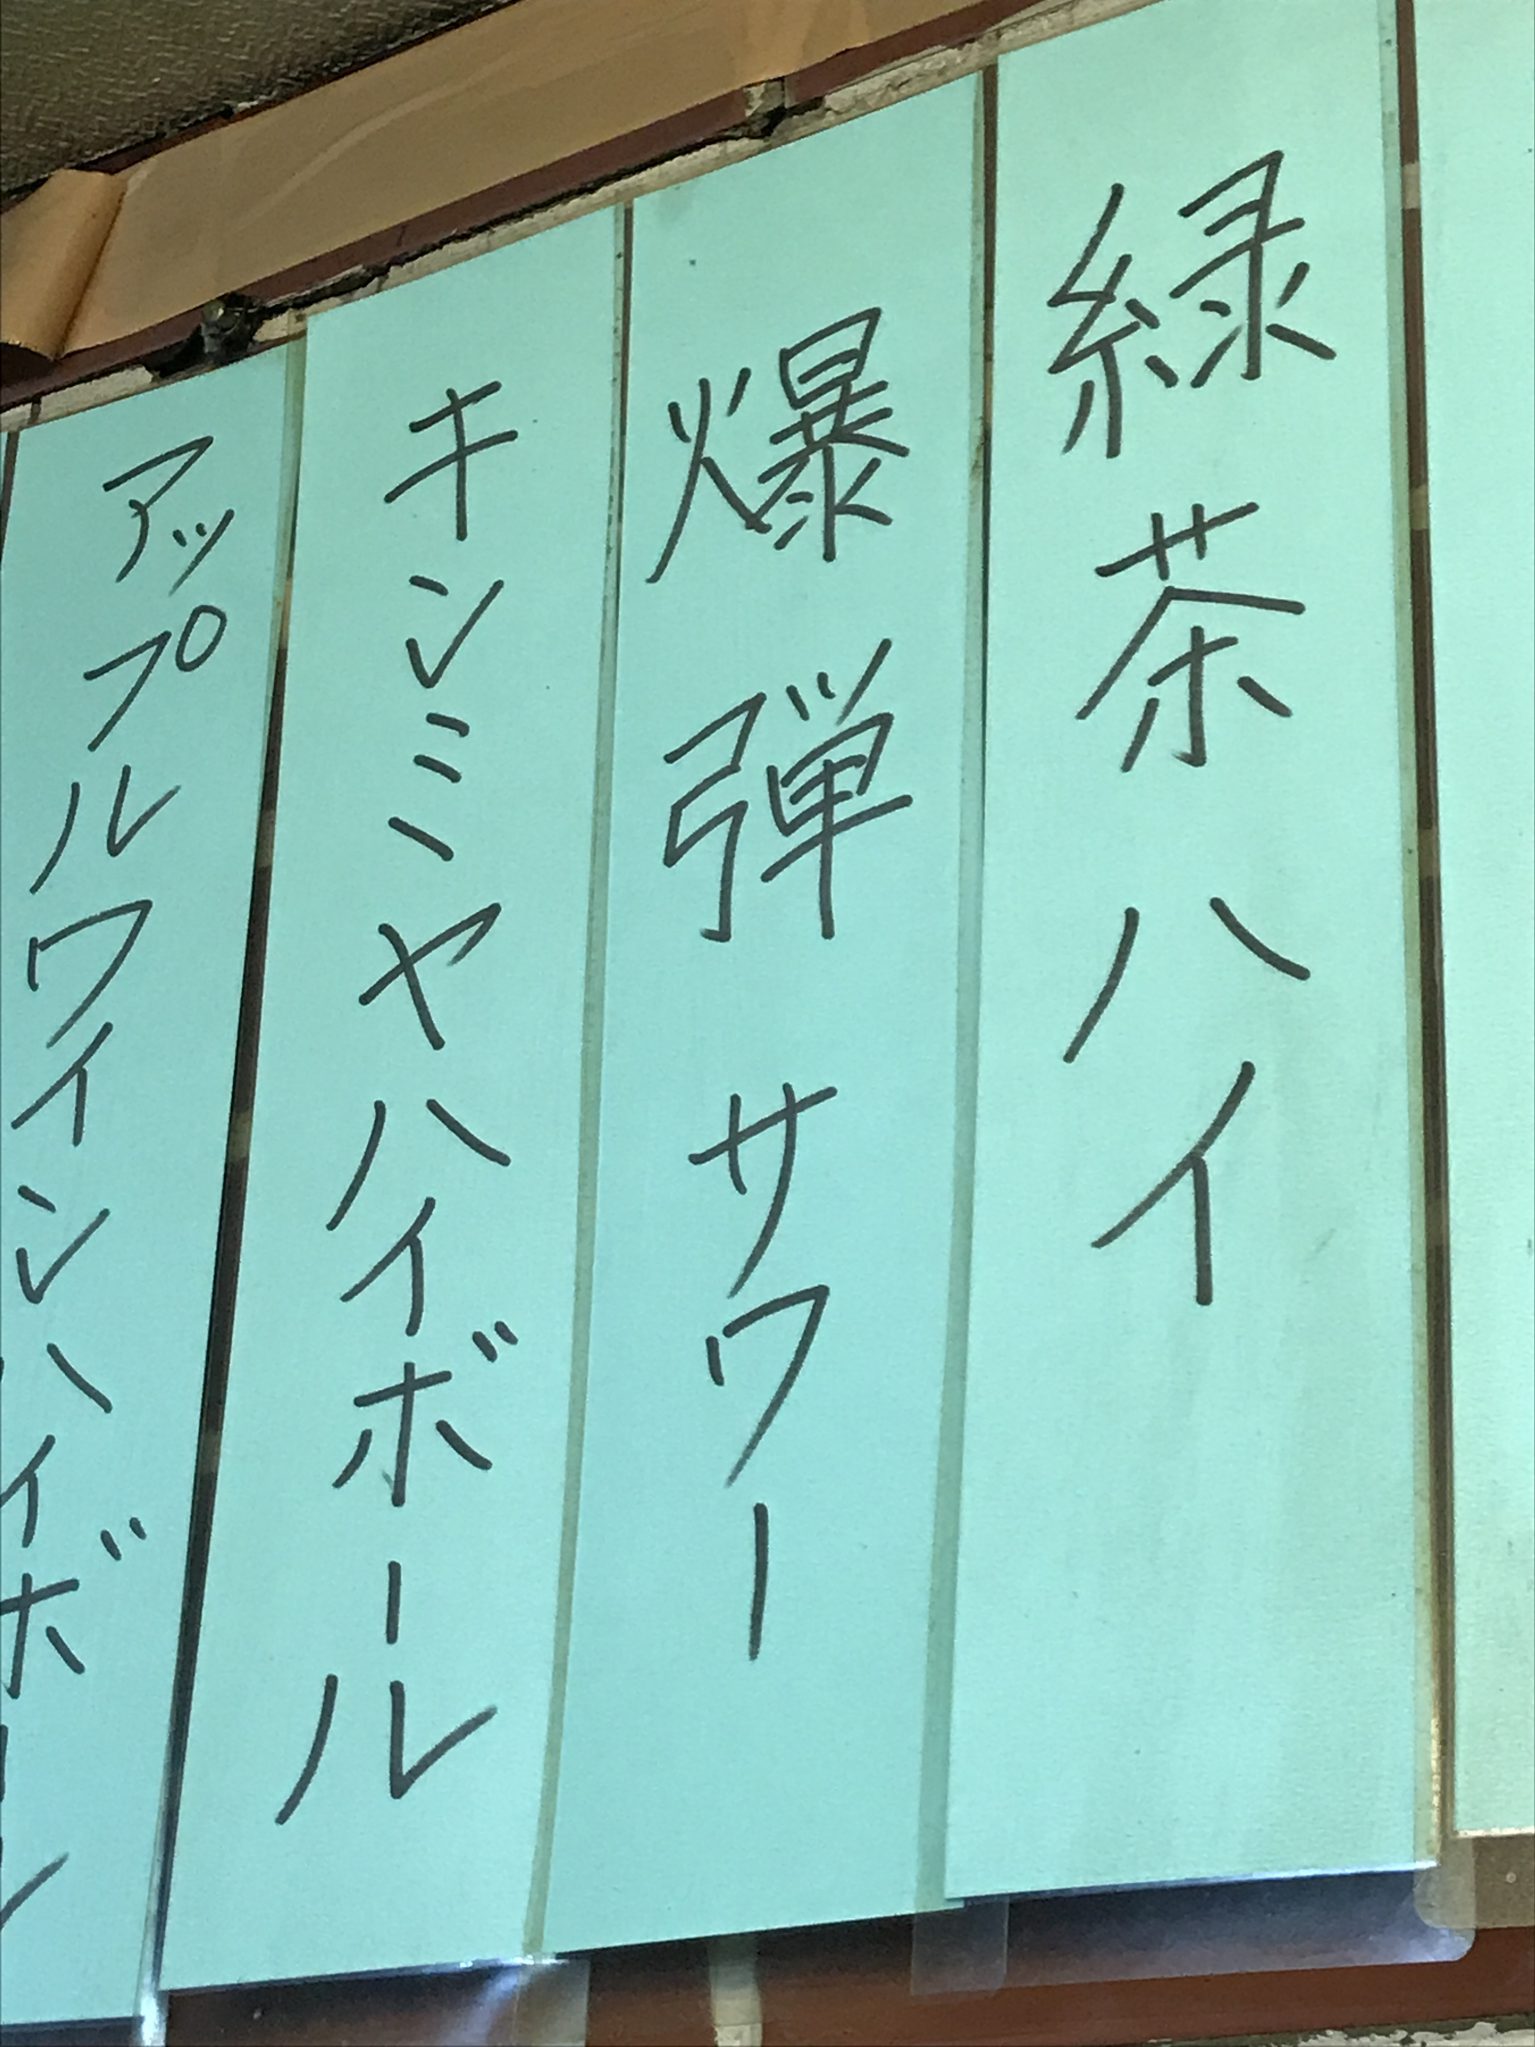 緑茶ハイ
爆弾サワー
キンミヤハイボール
アップルワインハイボール